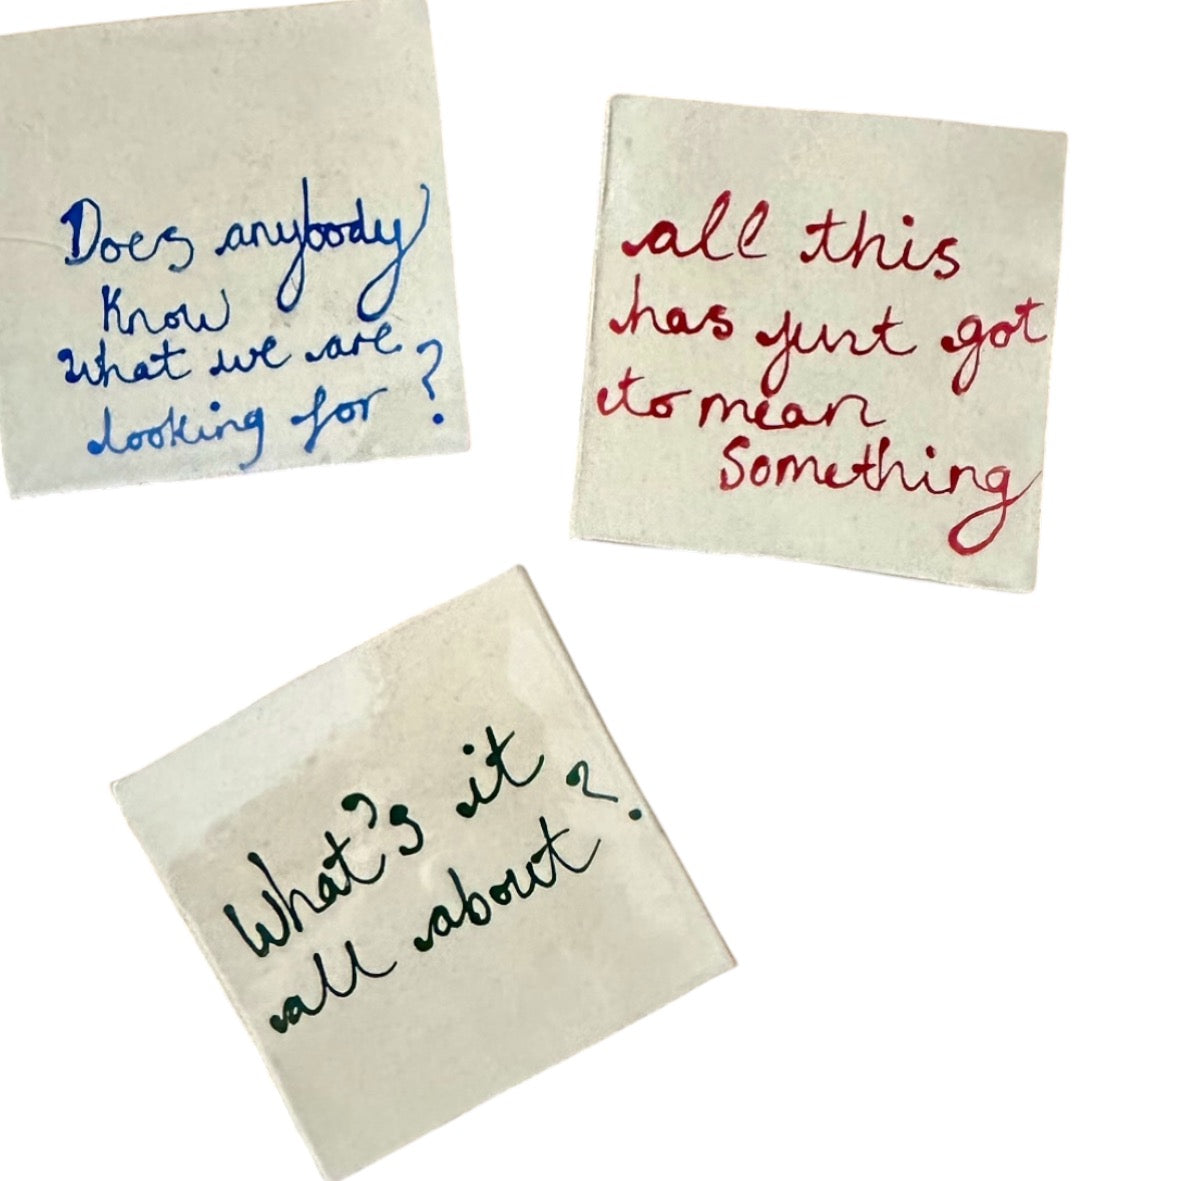 Does anybody
Know
what we are
looking for ?
all this
has just got
to mean
Something
What's it
all about ?